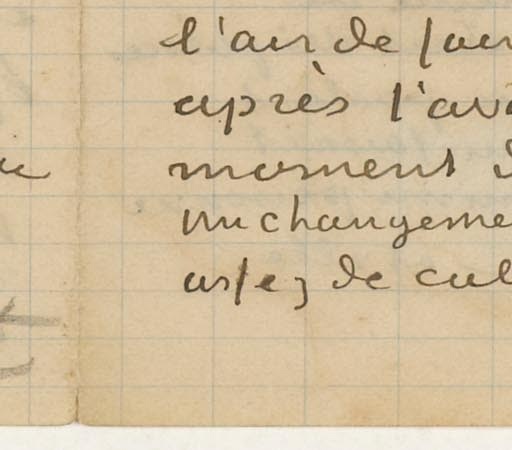 l'air de
après l'av
moment
un changeme
assez de cul